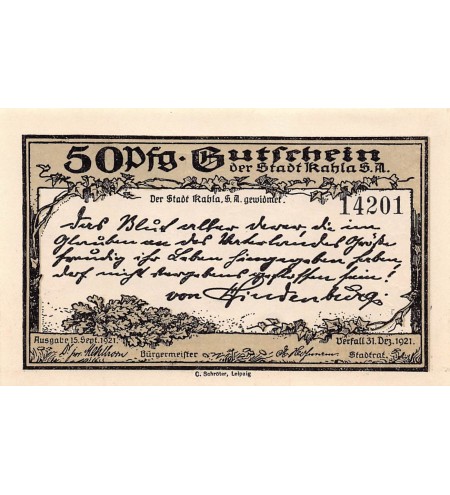 50 Pfg. Gutschein
der Stadt Kahla S.A.
Der Stadt Kahla, S.A. gewidmet:
14201
Das Blut aller derer, die im
Glauben an des Vaterlandes Größe
freudig ihr Leben hingegeben haben,
darf nicht vergebens geflossen sein!
von Hindenburg
Ausgabe 15. Sept. 1921.
Verfall 31. Dez. 1921.
Bürgermeister
Stadtrat.
C. Schröter, Leipzig